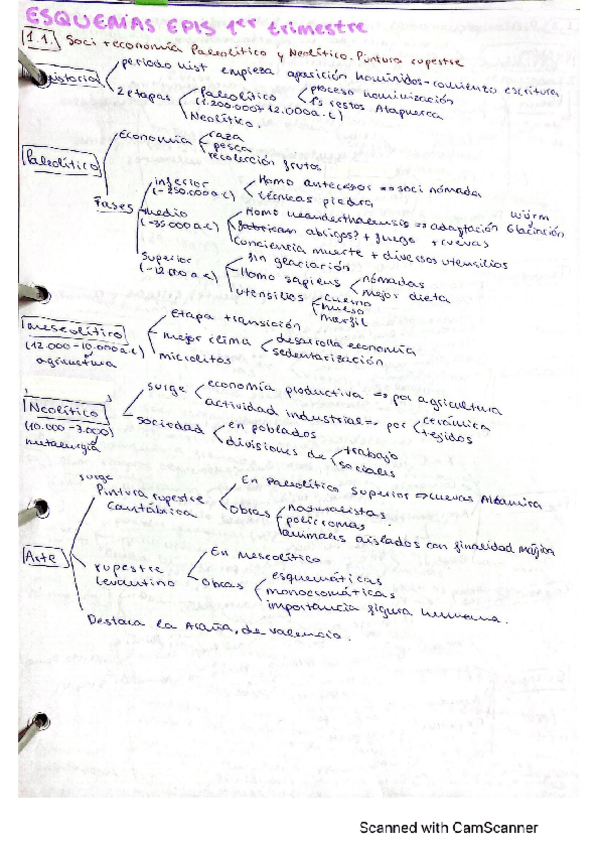 ESQUEMAS EPIS 1er trimestre
1.1. Soci + economía Paleolítico y Neolítico. Pintura rupestre
periodo hist empieza aparición homínidos - comienzo escritura
2 etapas
Paleolítico
(1.200.000 + 12.000 a.C)
proceso hominización
1os restos Atapuerca
Neolítico.
Paleolítico
Economía
caza
pesca
recolección frutos
Fases
inferior
(-250.000 a.C)
Homo antecesor => soci nómada
técnicas piedra
medio
(-35.000 a.C)
Homo neanderthalensis => adaptación Glaciación
würm
fabrican abrigos? + fuego + cuevas
conciencia muerte + diversos utensilios
superior
(-12.000 a.C)
Sin glaciación
Homo sapiens
nómadas
mejor dieta
utensilios
cuerno
hueso
marfil
Mesolítico
(12.000 - 10.000 a.C)
agricultura
Etapa transición
mejor clima
desarrolla economía
sedentarización
microlitos
Neolítico
(10.000 - 3.000)
metalurgia
surge
economía productiva => por agricultura
actividad industrial => por
cerámica
tejidos
sociedad
en poblados
divisiones de
trabajo
sociales
Arte
surge
Pintura rupestre
Cantábrica
En Paleolítico Superior => cuevas Altamira
Obras
naturalistas
polícromas
animales aislados con finalidad mágica
rupestre
Levantino
En Mesolítico
Obras
esquemáticas
monocromáticas
importancia figura humana.
Destaca la Araña, de Valencia.
Scanned with CamScanner